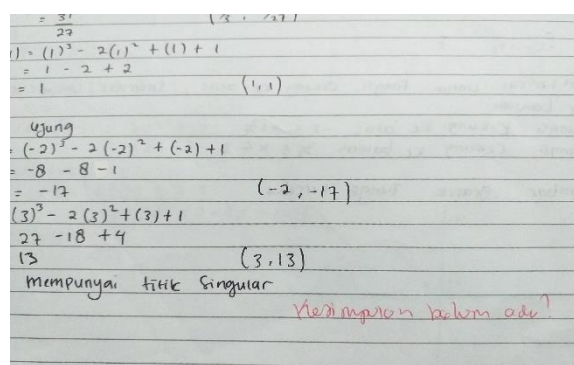 = 31
27
(3, 27)
1) = (1)³ - 2(1)² + (1) + 1
= 1 - 2 + 2
= 1 (1,1)
ujung
= (-2)³ - 2(-2)² + (-2) + 1
= -8 - 8 - 1
= -17 (-2, -17)
(3)³ - 2(3)² + (3) + 1
27 - 18 + 4
13 (3,13)
mempunyai titik singular
Kesimpulan belum ada?